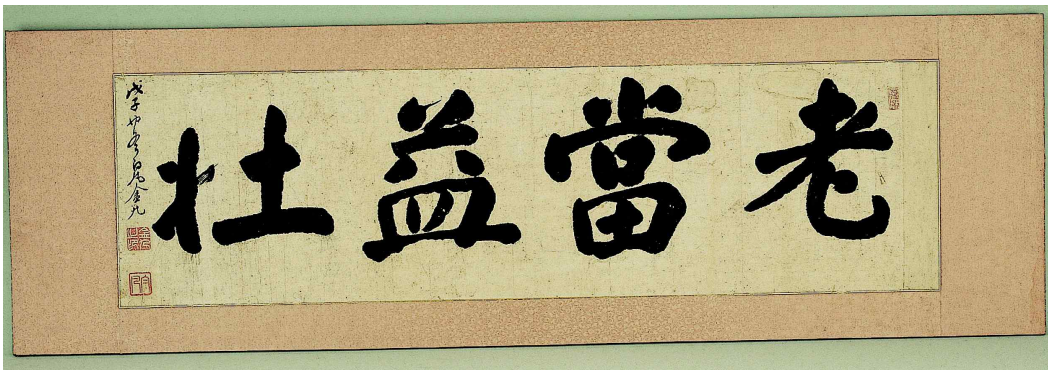 老當益壯
戊子
白凡金九